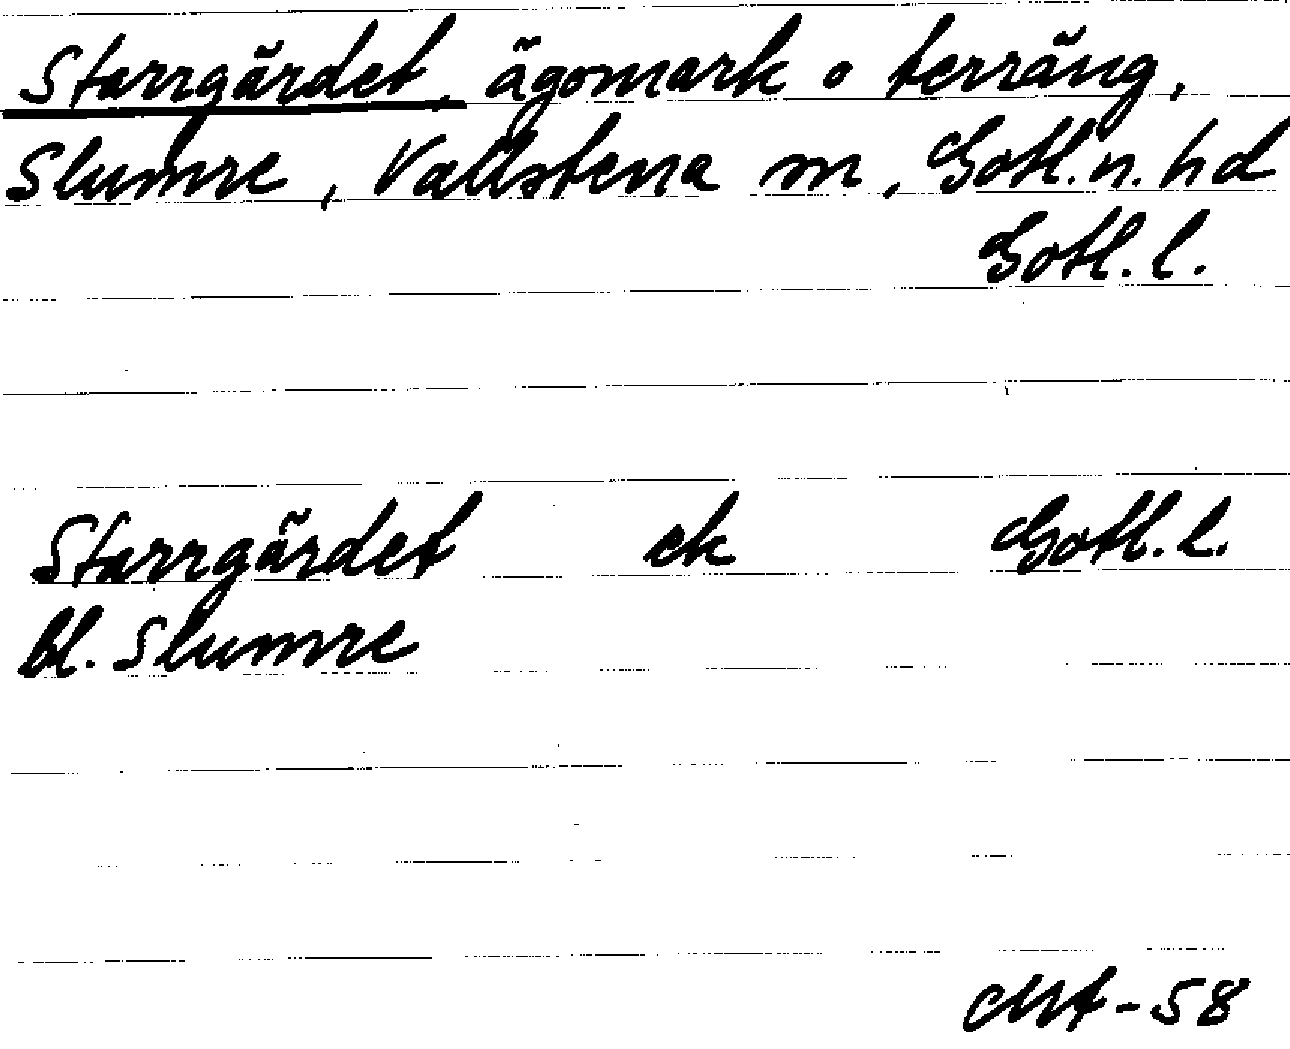 Starrgärdet, ägomark o terräng,
Slumre, Vallstena sn, Gotl. n. hd
Gotl. l.
Starrgärdet ek Gotl. l.
Bl. Slumre
-58